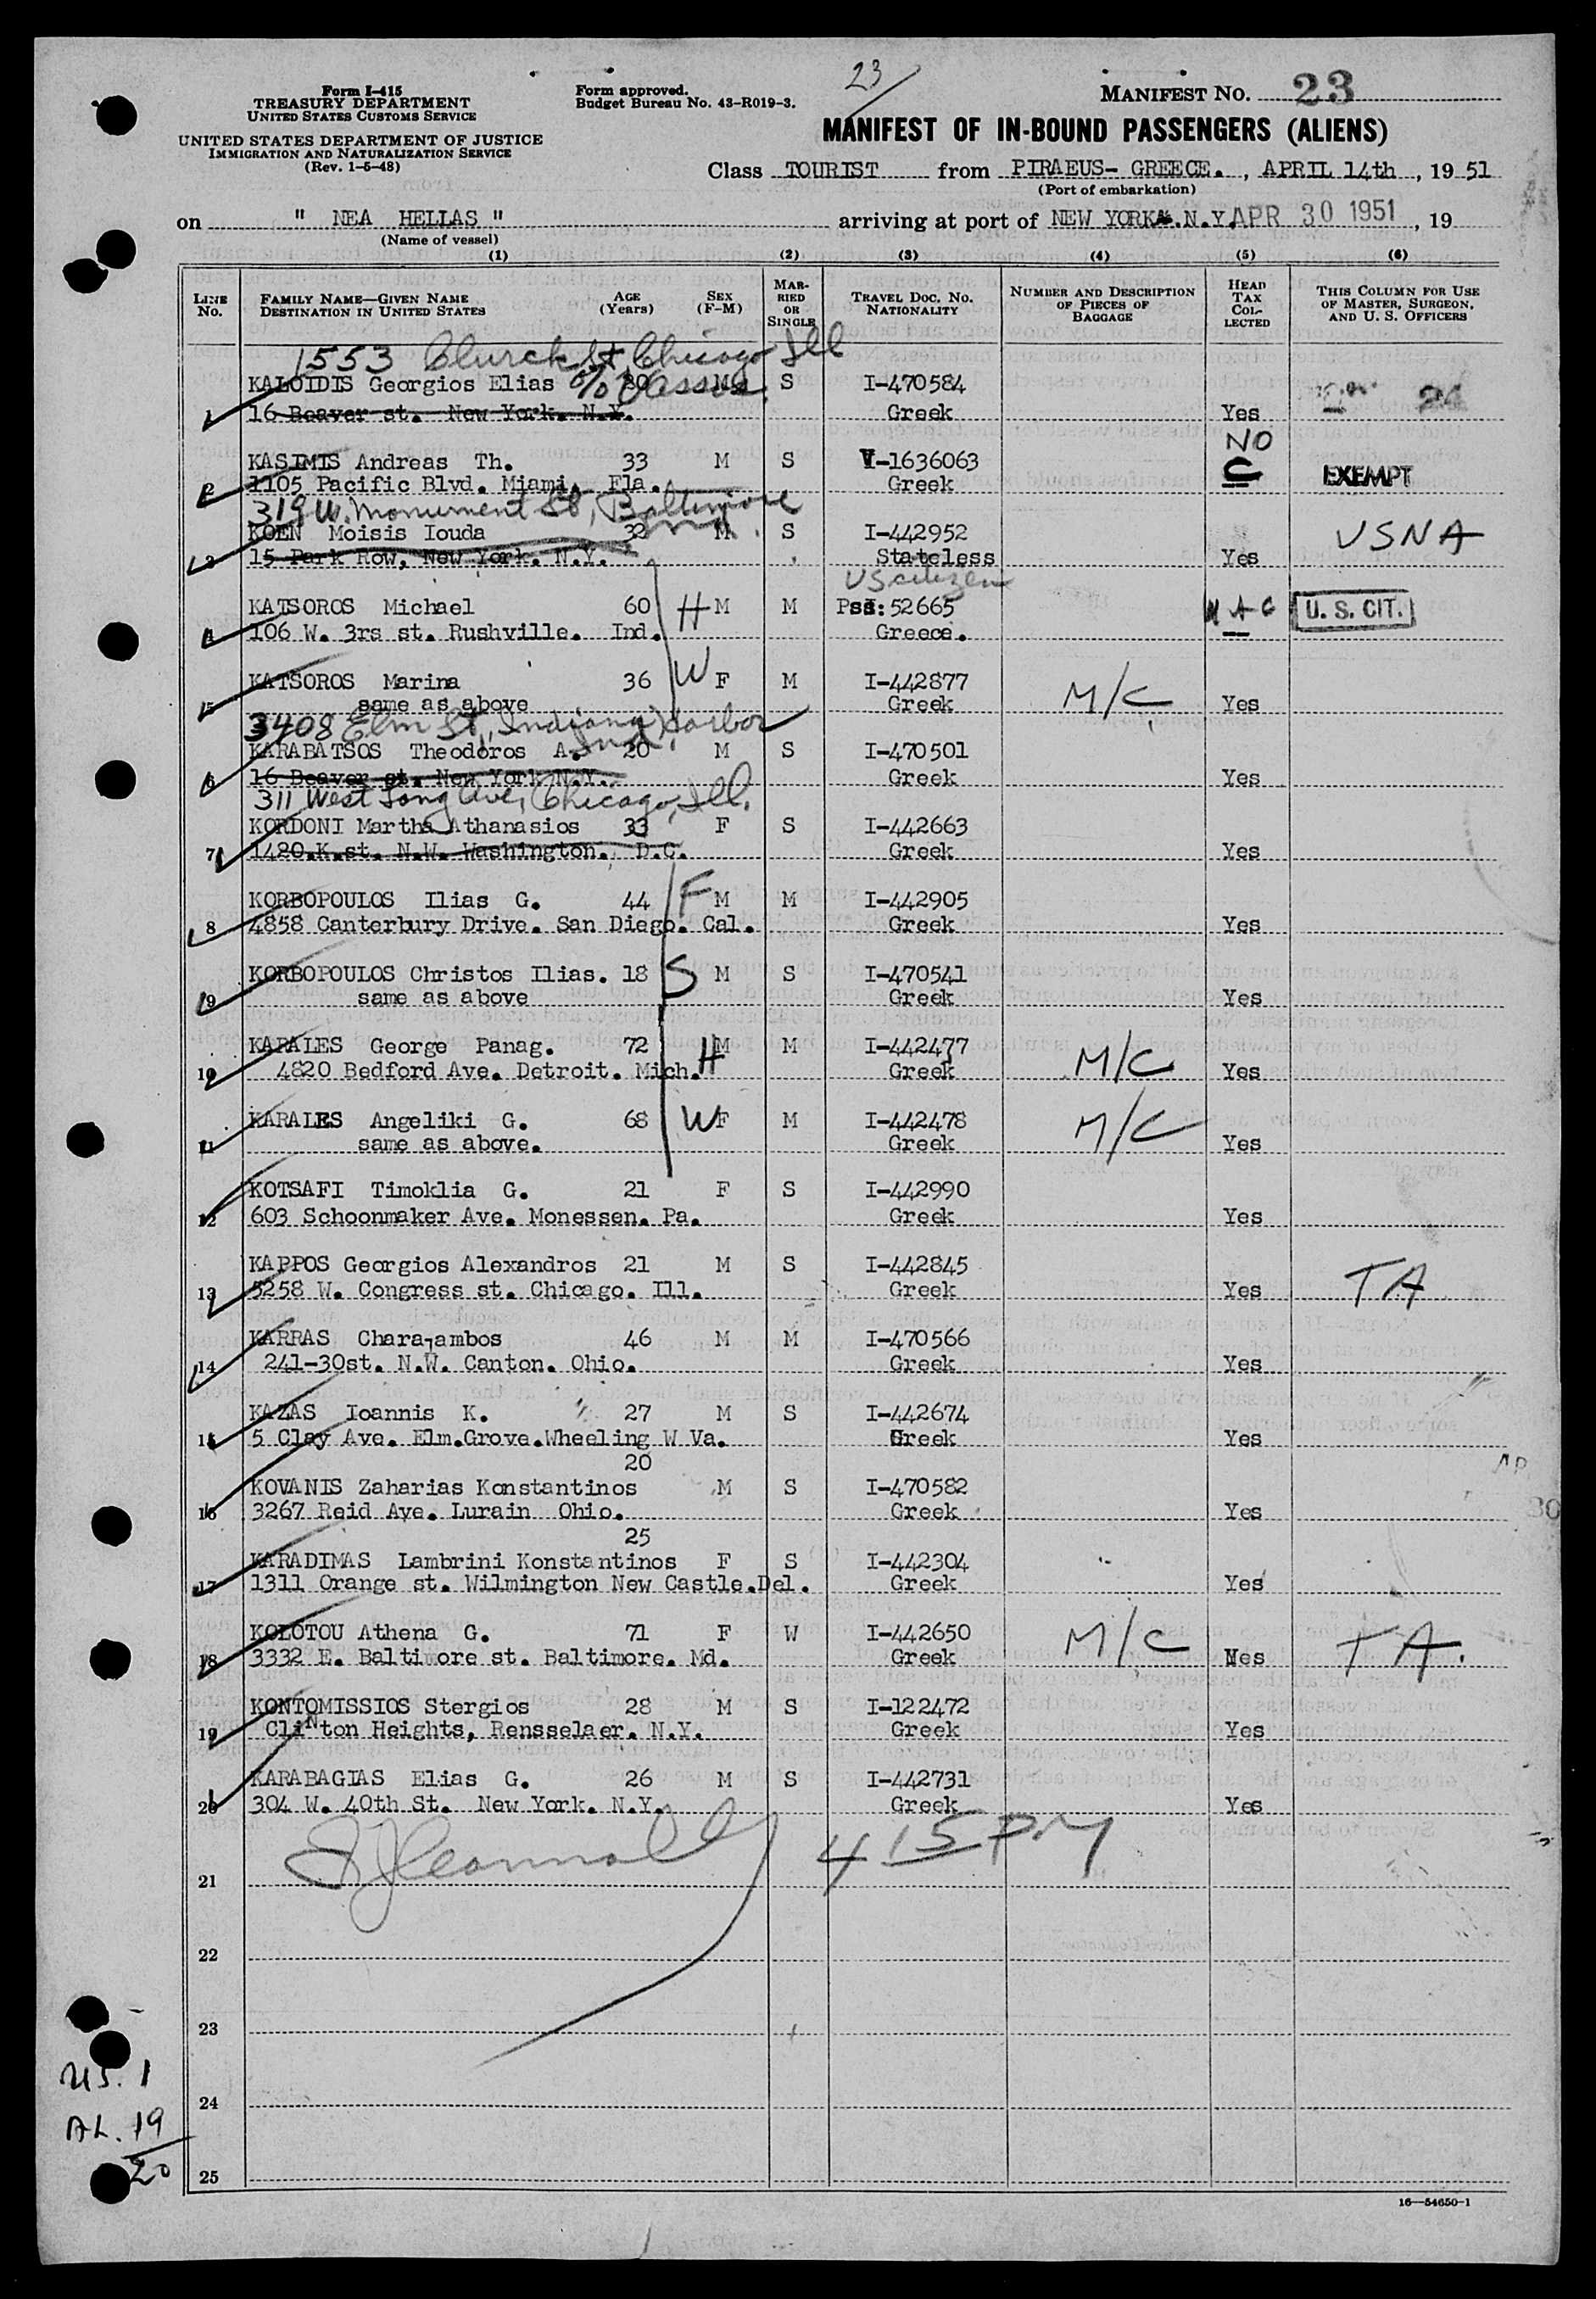 23
Form I-415
TREASURY DEPARTMENT
UNITED STATES CUSTOMS SERVICE
UNITED STATES DEPARTMENT OF JUSTICE
IMMIGRATION AND NATURALIZATION SERVICE
(Rev. 1-5-48)
Form approved.
Budget Bureau No. 43-R019-3.
MANIFEST NO. 23
MANIFEST OF IN-BOUND PASSENGERS (ALIENS)
Class TOURIST from PIRAEUS- GREECE. , APRIL 14th , 19 51
(Port of embarkation)
on " NEA HELLAS " arriving at port of NEW YORK .N.Y. APR 30 1951 , 19
(Name of vessel)
(1) (2) (3) (4) (5) (6)
LINE No. FAMILY NAME—GIVEN NAME DESTINATION IN UNITED STATES AGE (Years) SEX (F-M) MARRIED OR SINGLE TRAVEL DOC. NO. NATIONALITY NUMBER AND DESCRIPTION OF PIECES OF BAGGAGE HEAD TAX COLLECTED THIS COLUMN FOR USE OF MASTER, SURGEON, AND U. S. OFFICERS
1553 St. Chicago Ill
KALOIDIS Georgios Elias c/o M S I-470584
1 16 Beaver st. New York. N.Y. Greek Yes
NO
KASIMIS Andreas Th. 33 M S V-1636063 C EXEMPT
2 1105 Pacific Blvd. Miami. Fla. Greek
319 W. Monument St, Baltimore Md.
KOEN Moisis Iouda 32 M S I-442952 USNA
3 15 Park Row, New York. N.Y. Stateless Yes
US citizen
KATSOROS Michael 60 H M M Pss: 52665 U. S. CIT.
4 106 W. 3rs st. Rushville. Ind. Greece.
KATSOROS Marina 36 W F M I-442877 M/C
5 same as above Greek Yes
3408 Elm St., Indiana Harbor Ind.
KARABATSOS Theodoros A. 20 M S I-470501
6 16 Beaver st. New York N.Y. Greek Yes
311 West Ave, Chicago, Ill.
KORDONI Martha Athanasios 33 F S I-442663
7 1420.K.st. N.W. Washington. D.C. Greek Yes
KORBOPOULOS Ilias G. 44 F M M I-442905
8 4858 Canterbury Drive. San Diego. Cal. Greek Yes
KORBOPOULOS Christos Ilias. 18 S M S I-470541
9 same as above Greek Yes
KARALES George Panag. 72 H M M I-442477 M/C
10 4820 Bedford Ave. Detroit. Mich. Greek Yes
KARALES Angeliki G. 68 W F M I-442478 M/C
11 same as above. Greek Yes
KOTSAFI Timoklia G. 21 F S I-442990
12 603 Schoonmaker Ave. Monessen. Pa. Greek Yes
KAPPOS Georgios Alexandros 21 M S I-442845 TA
13 5258 W. Congress st. Chicago. Ill. Greek Yes
KARRAS Charalambos 46 M M I-470566
14 241-30st. N.W. Canton. Ohio. Greek Yes
KAZAS Ioannis K. 27 M S I-442674
15 5 Clay Ave. Elm.Grove.Wheeling W Va. Greek Yes
20
KOVANIS Zaharias Konstantinos M S I-470582
16 3267 Reid Ave. Lurain Ohio. Greek Yes
25
KARADIMAS Lambrini Konstantinos F S I-442304
17 1311 Orange st. Wilmington New Castle.Del. Greek Yes
KOLOTOU Athena G. 71 F W I-442650 M/C T A.
18 3332 E. Baltimore st. Baltimore. Md. Greek Yes
KONTOMISSIOS Stergios 28 M S I-122472
19 Clinton Heights, Rensselaer. N.Y. Greek Yes
KARABAGIAS Elias G. 26 M S I-442731
20 304 W. 40th St. New York. N.Y. Greek Yes
4 15 PM
21
22
23
24
25
US. 1
AL. 19
20
16—54650-1